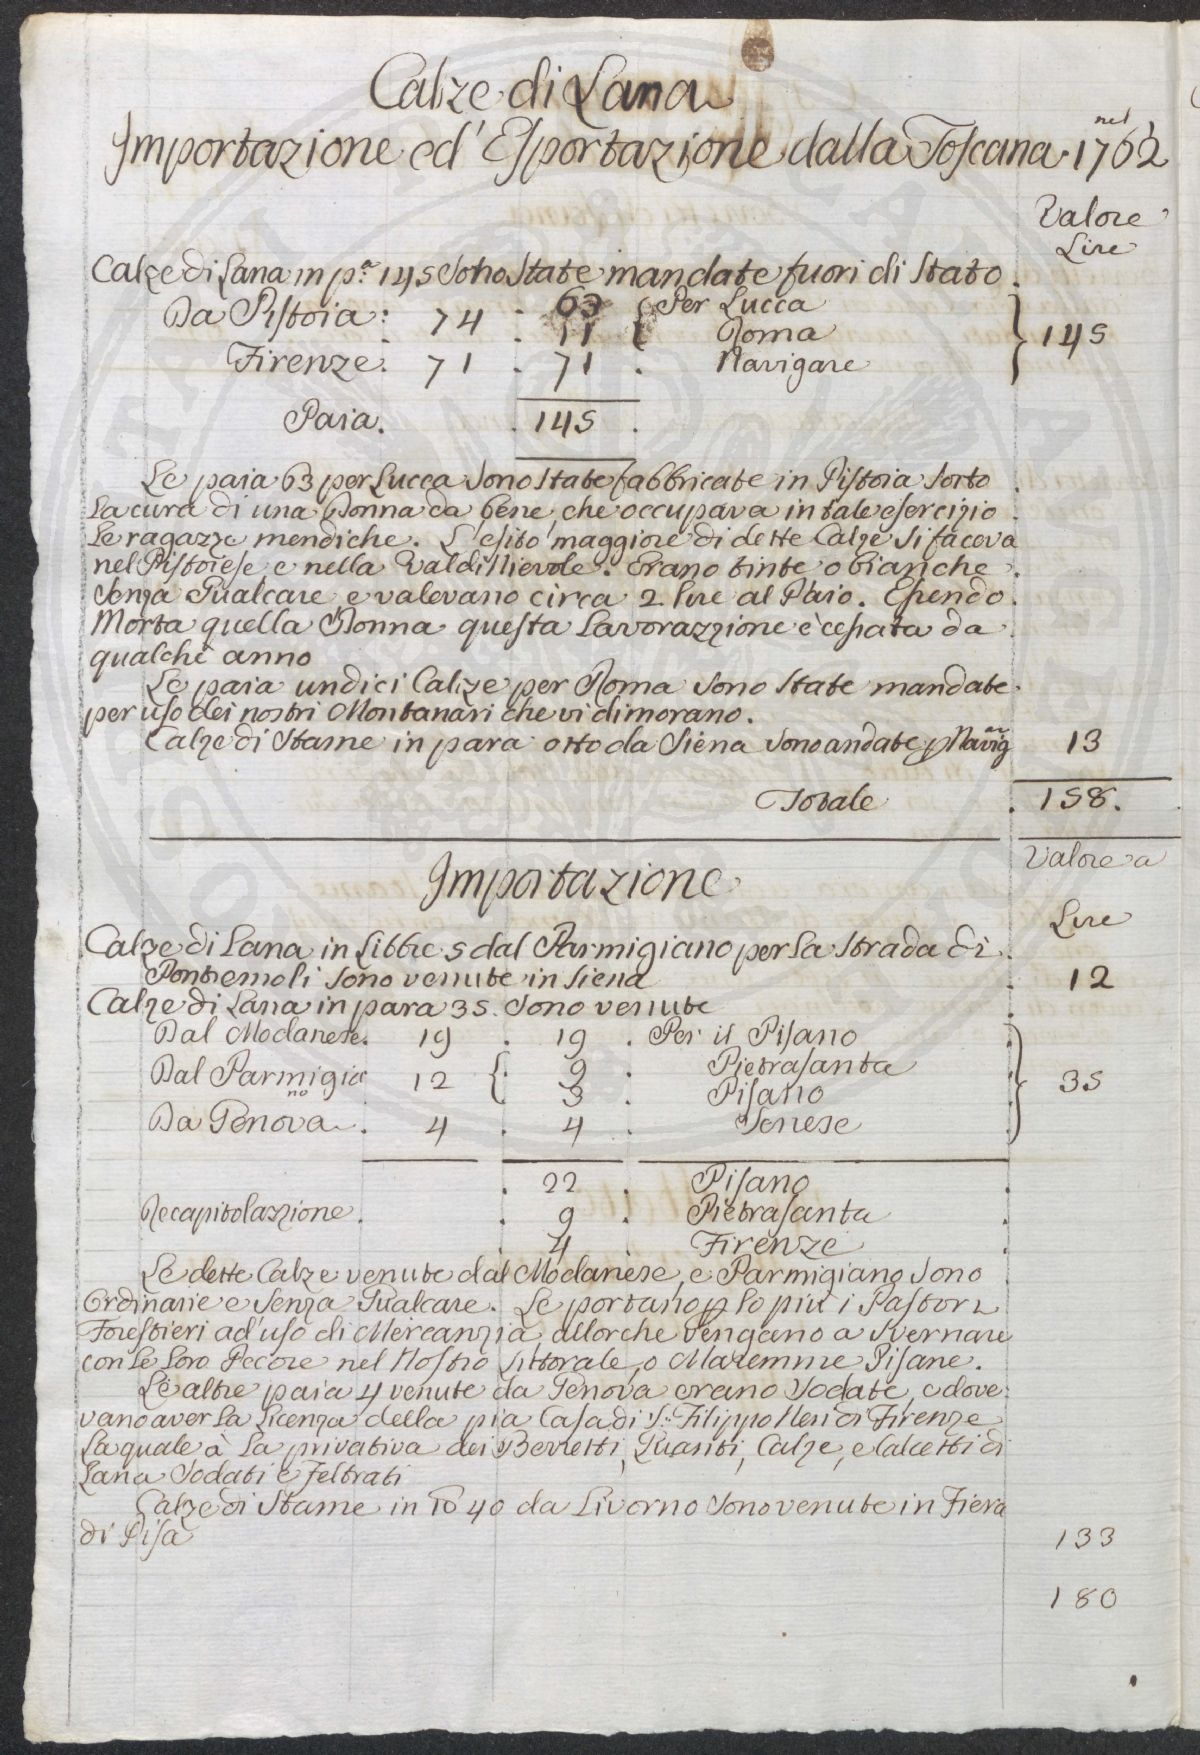 Calze di Lana
Importazione ed' Esportazione dalla Toscana nel 1762
Valore
Lire
Calze di Lana in p.ª 145 Sono State mandate fuori di Stato
Da Pistoia: 74 . 63 { Per Lucca
11 { Roma } 145
Firenze. 71 . 71 . Navigare
Paia. . 145 .
Le paia 63 per Lucca Sono State fabbricate in Pistoia Sotto
La cura di una Donna da bene, che occupava in tale esercizio
Le ragazze mendiche. L'esito maggiore di dette Calze Si faceva
nel Pistoiese e nella Valdinievole. Erano tinte o bianche
Senza Gualcare e valevano circa 2 lire al Paio. Essendo
Morta quella Donna questa Lavorazzione è cessata da
qualche anno
Le paia undici Calze per Roma Sono State mandate
per uso dei nostri Montanari che vi dimorano.
Calze di Stame in para otto da Siena Sono andate p Navig.re 13
Totale . 158.
Importazione
Valore a
Lire
Calze di Lana in Libbre 5 dal Parmigiano per La Strada di
Pontremoli Sono venute in Siena 12
Calze di Lana in para 35. Sono venute
Dal Modanese. 19 . 19 . Per il Pisano
Dal Parmigiano 12 { . 9 . Pietrasanta } 35
3 . Pisano
Da Genova . 4 . 4 . Senese
. 22 . Pisano
Recapitolazzione. . 9 . Pietrasanta
4 Firenze
Le dette Calze venute dal Modanese, e Parmigiano Sono
Ordinarie e Senza Gualcare. Le portano p lo più i Pastori
Forestieri ad'uso di Mercanzia allorche vengano a Svernare
con Le Loro Pecore nel Nostro Littorale, o Maremme Pisane.
Le altre paia 4 venute da Genova erano Sodate, e dove
vano aver La Licenza della pia Casa di S. Filippo Neri di Firenze
La quale à La privativa dei Berretti, Guanti, Calze, e Calcetti di
Lana Sodati e Feltrati
Calze di Stame in 40 da Livorno Sono venute in Fiera
di Pisa 133
180